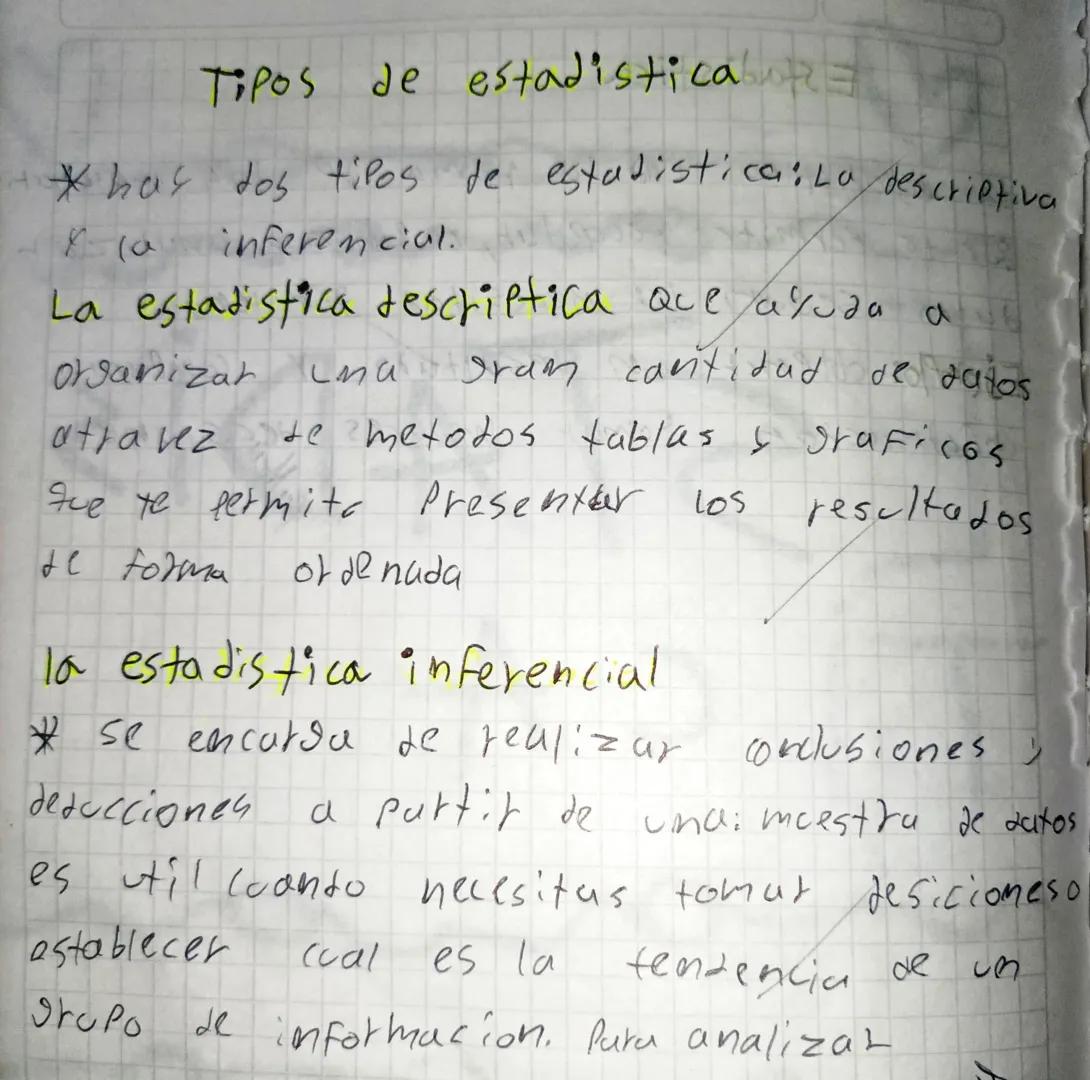 Tipos de estadistica
* hay dos tipos de estadistica: La descriptiva
y la inferencial.
La estadistica descriptica que ayuda a
organizar una gram cantidad de datos
atravez de metodos tablas y graficos
que te permita Presentar los resultados
de forma ordenada
la estadistica inferencial
* se encarga de realizar conclusiones y
deducciones a partir de una: muestra de datos
es util cuando necesitas tomar desiciones o
establecer cual es la tendencia de un
grupo de informacion. Para analizar